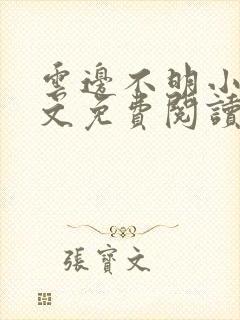 雲邊不明小
文免費閱讀
張寶文